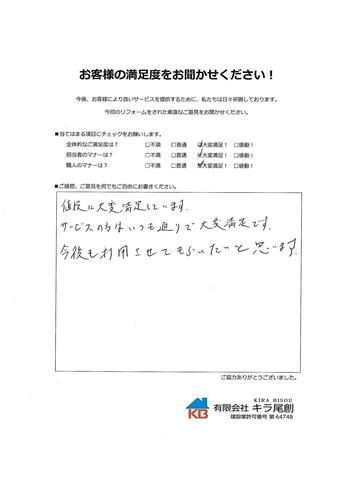 お客様の満足度をお聞かせください！
今後、お客様により良いサービスを提供するために、私たちは日々研鑽しております。
今回のリフォームをされた素直なご意見をお聞かせください。
■当てはまる項目にチェックをお願いします。
全体的なご満足度は？ □不満 □普通 ☑大変満足！ □感動！
担当者のマナーは？ □不満 □普通 ☑大変満足！ □感動！
職人のマナーは？ □不満 □普通 ☑大変満足！ □感動！
■ご感想、ご意見を何でもご自由にお書きください。
値段に大変満足しています.
サービスの方はいつも通りで大変満足です.
今後も利用させてもらいたいと思います.
ご協力ありがとうございました。
KIRA BISOU
KB 有限会社 キラ尾創
建設業許可番号 第64748